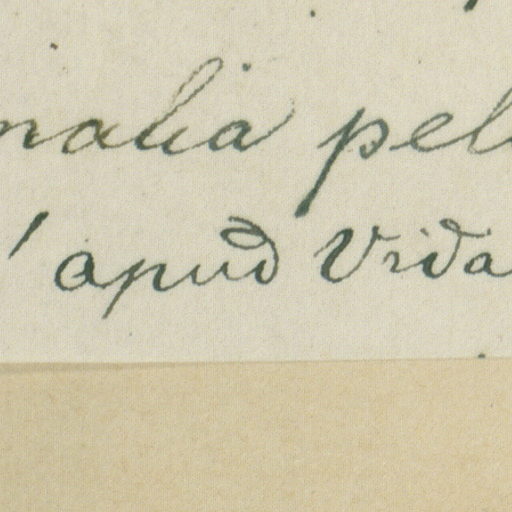 nalia pel
' apud Vida